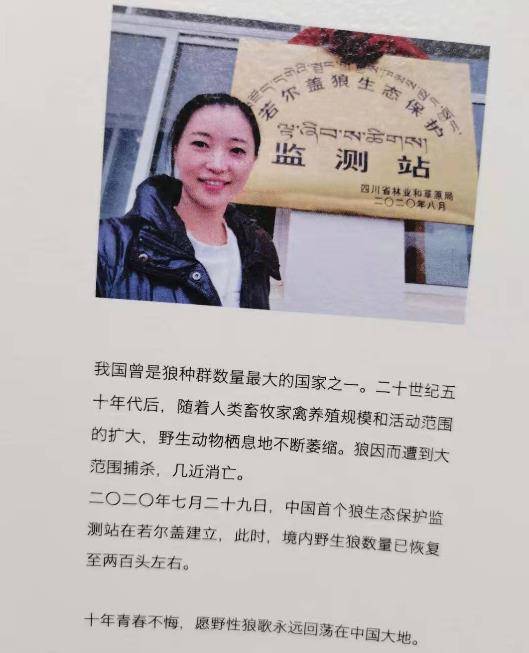 若尔盖狼生态保护
监测站
四川省林业和草原局
二〇二〇年八月
我国曾是狼种群数量最大的国家之一。二十世纪五
十年代后，随着人类畜牧家禽养殖规模和活动范围
的扩大，野生动物栖息地不断萎缩。狼因而遭到大
范围捕杀，几近消亡。
二〇二〇年七月二十九日，中国首个狼生态保护监
测站在若尔盖建立，此时，境内野生狼数量已恢复
至两百头左右。
十年青春不悔，愿野性狼歌永远回荡在中国大地。